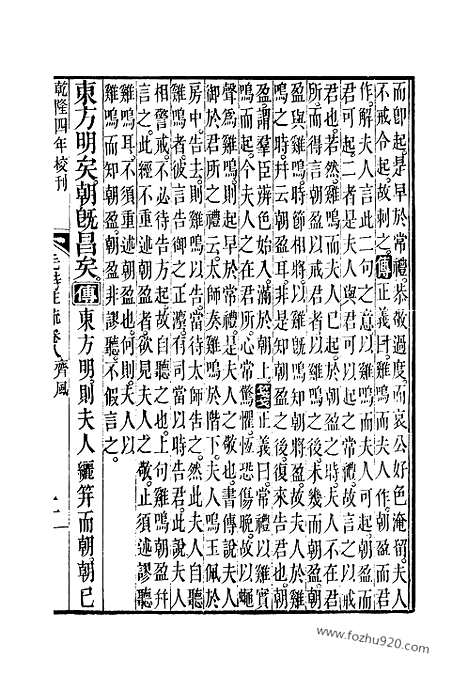 而卽起是早於常禮恭敬過度而哀公好色淹留夫人
不戒令起故刺之傳正義曰雞鳴而夫人作朝盈而君
作解夫人言此二句之意以雞鳴而夫人可起朝盈而
君可起二者是夫人與君可以起之常禮故言之以戒
君也若然雞鳴而夫人已起於朝盈之時夫人不在君
所而得言朝盈以戒君者以雞鳴之後未幾而朝盈朝
盈與雞鳴時節相將以雞鳴知朝將盈故夫人於雞
鳴之時幷云朝盈耳非是知朝盈之後復來告君也朝
盈謂羣臣辨色始入滿於朝上箋正義曰常禮以雞實
鳴而起今夫人之在君所心常驚懼恆恐傷晚故以蠅
聲爲雞鳴則起早於常禮是夫人之敬也書傳說夫人
御於君所之禮云太師奏雞鳴於階下夫人鳴玉佩於
房中告去則雞鳴以告當待太師告之然此夫人自聽
雞鳴者彼言告御之正禮有司當以時告君此說夫人
相警戒不必待告方起故自聽之也上句雞鳴朝盈幷
言之此經不重述朝盈者欲見夫人之敬止須述謬聽
雞鳴耳不須重述朝盈也何則夫人以
雞鳴而知朝盈非謬聽不假言之
東方明矣朝旣昌矣傳東方明則夫人纚笄而朝朝已
乾隆四年校刊
毛詩注疏卷八齊風
www.fozhu920.com